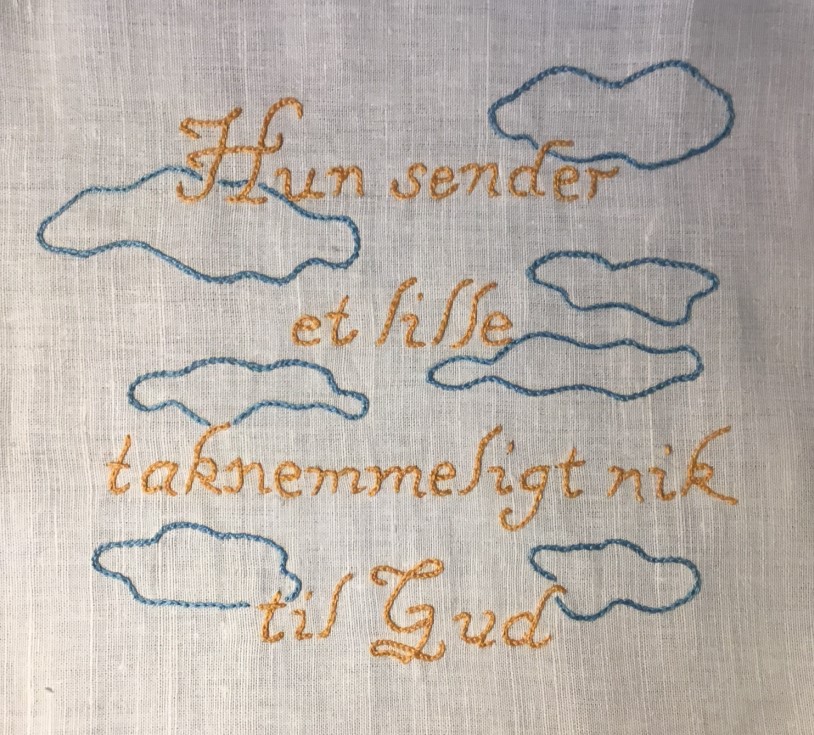 Hun sender
et lille
taknemmeligt nik
til Gud